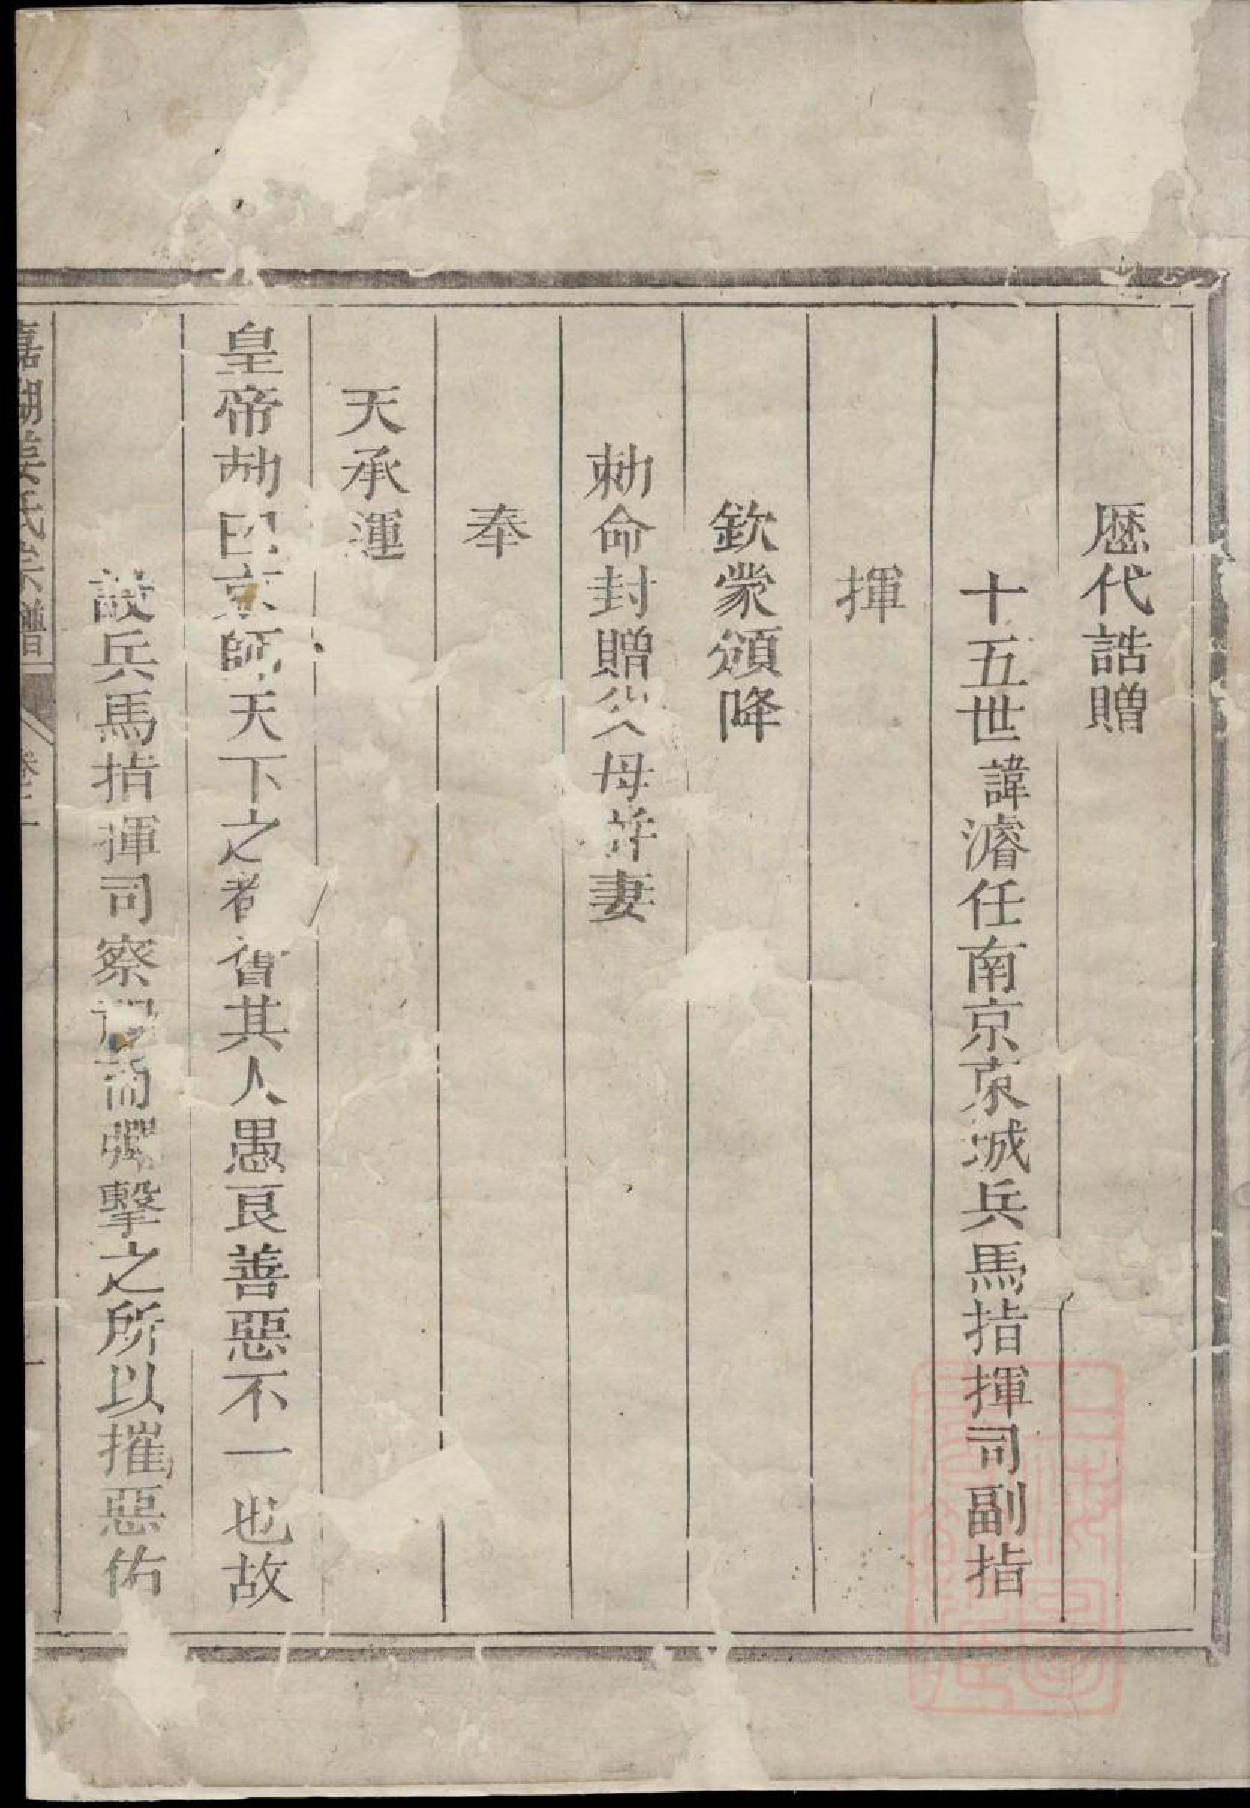 歷代誥贈
十五世諱濬任南京東城兵馬指揮司副指
揮
欽蒙頒降
勅命封贈父母并妻
奉
天承運
皇帝勅曰京師天下之都會其人愚良善惡不一也故
設兵馬指揮司察視而彈擊之所以摧惡佑
嘉湖姜氏宗譜 卷二 一